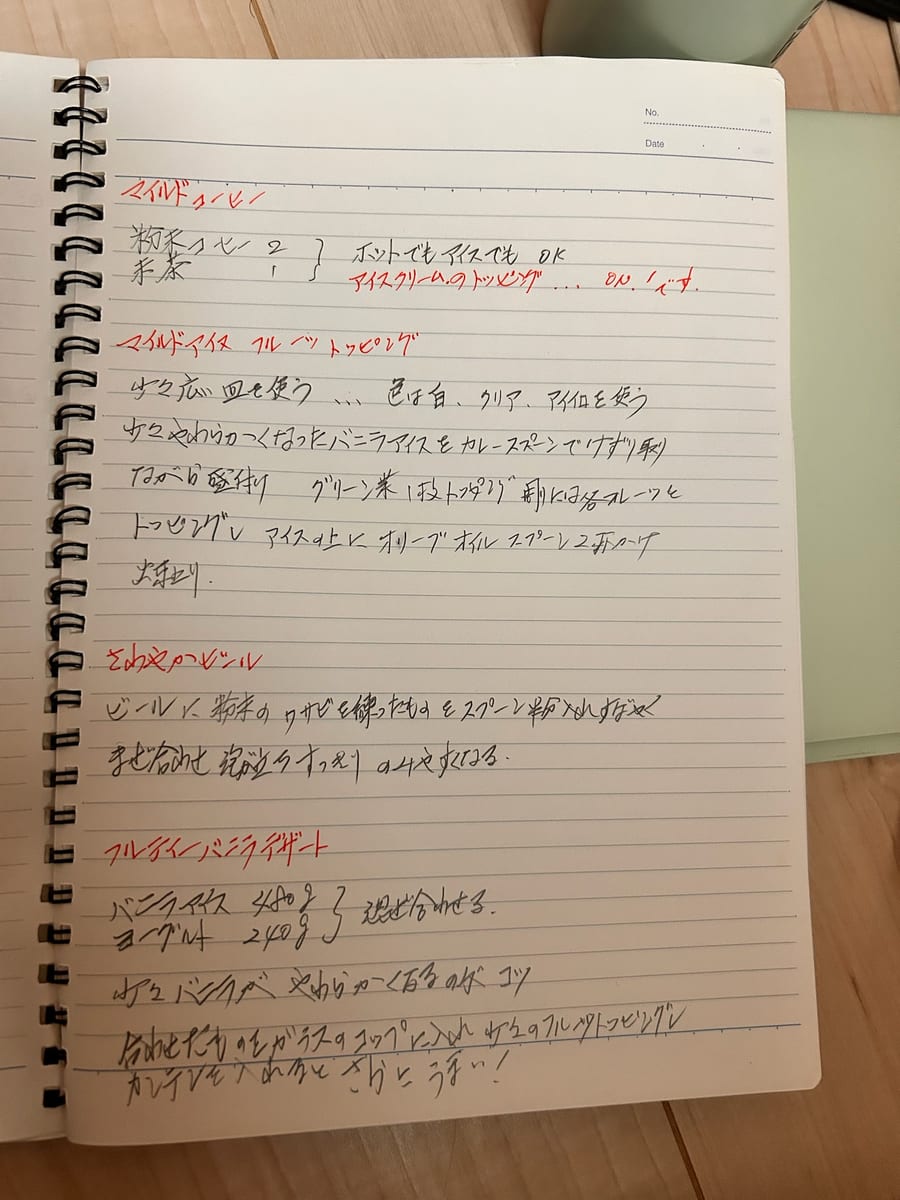 No.
Date
マイルドコーヒー
粉末コーヒー 2
末茶 1
ホットでもアイスでも OK
アイスクリームのトッピング... ON!です.
マイルドアイス フルーツトッピング
少々広い皿を使う ... 色は白、クリア、アイ色を使う
少々やわらかくなったバニラアイスをカレースプーンでけずり取り
ながら盛付け グリーン葉1枚トッピング 別には各フルーツを
トッピングし アイスの上に オリーブオイル スプーン2杯かけ
出来上り.
さわやかビール
ビールに 粉末の ワサビを練ったものをスプーン半分入れすばやく
まぜ合わせ 泡が立ちすっきり のみやすくなる.
フルーティーバニラデザート
バニラアイス 480g
ヨーグルト 240g
混ぜ合わせる.
少々バニラが やわらかくなるのがコツ
合わせたものをガラスのコップに入れ 少々のフルーツトッピングし
カンテンを入れると さらにうまい!